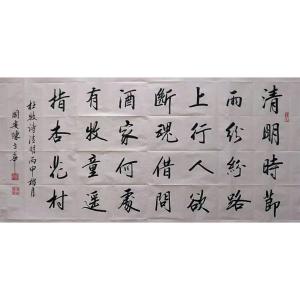 清明時節
雨紛紛路
上行人欲
斷魂借問
酒家何處
有牧童遥
指杏花村
杜牧诗清明丙申月